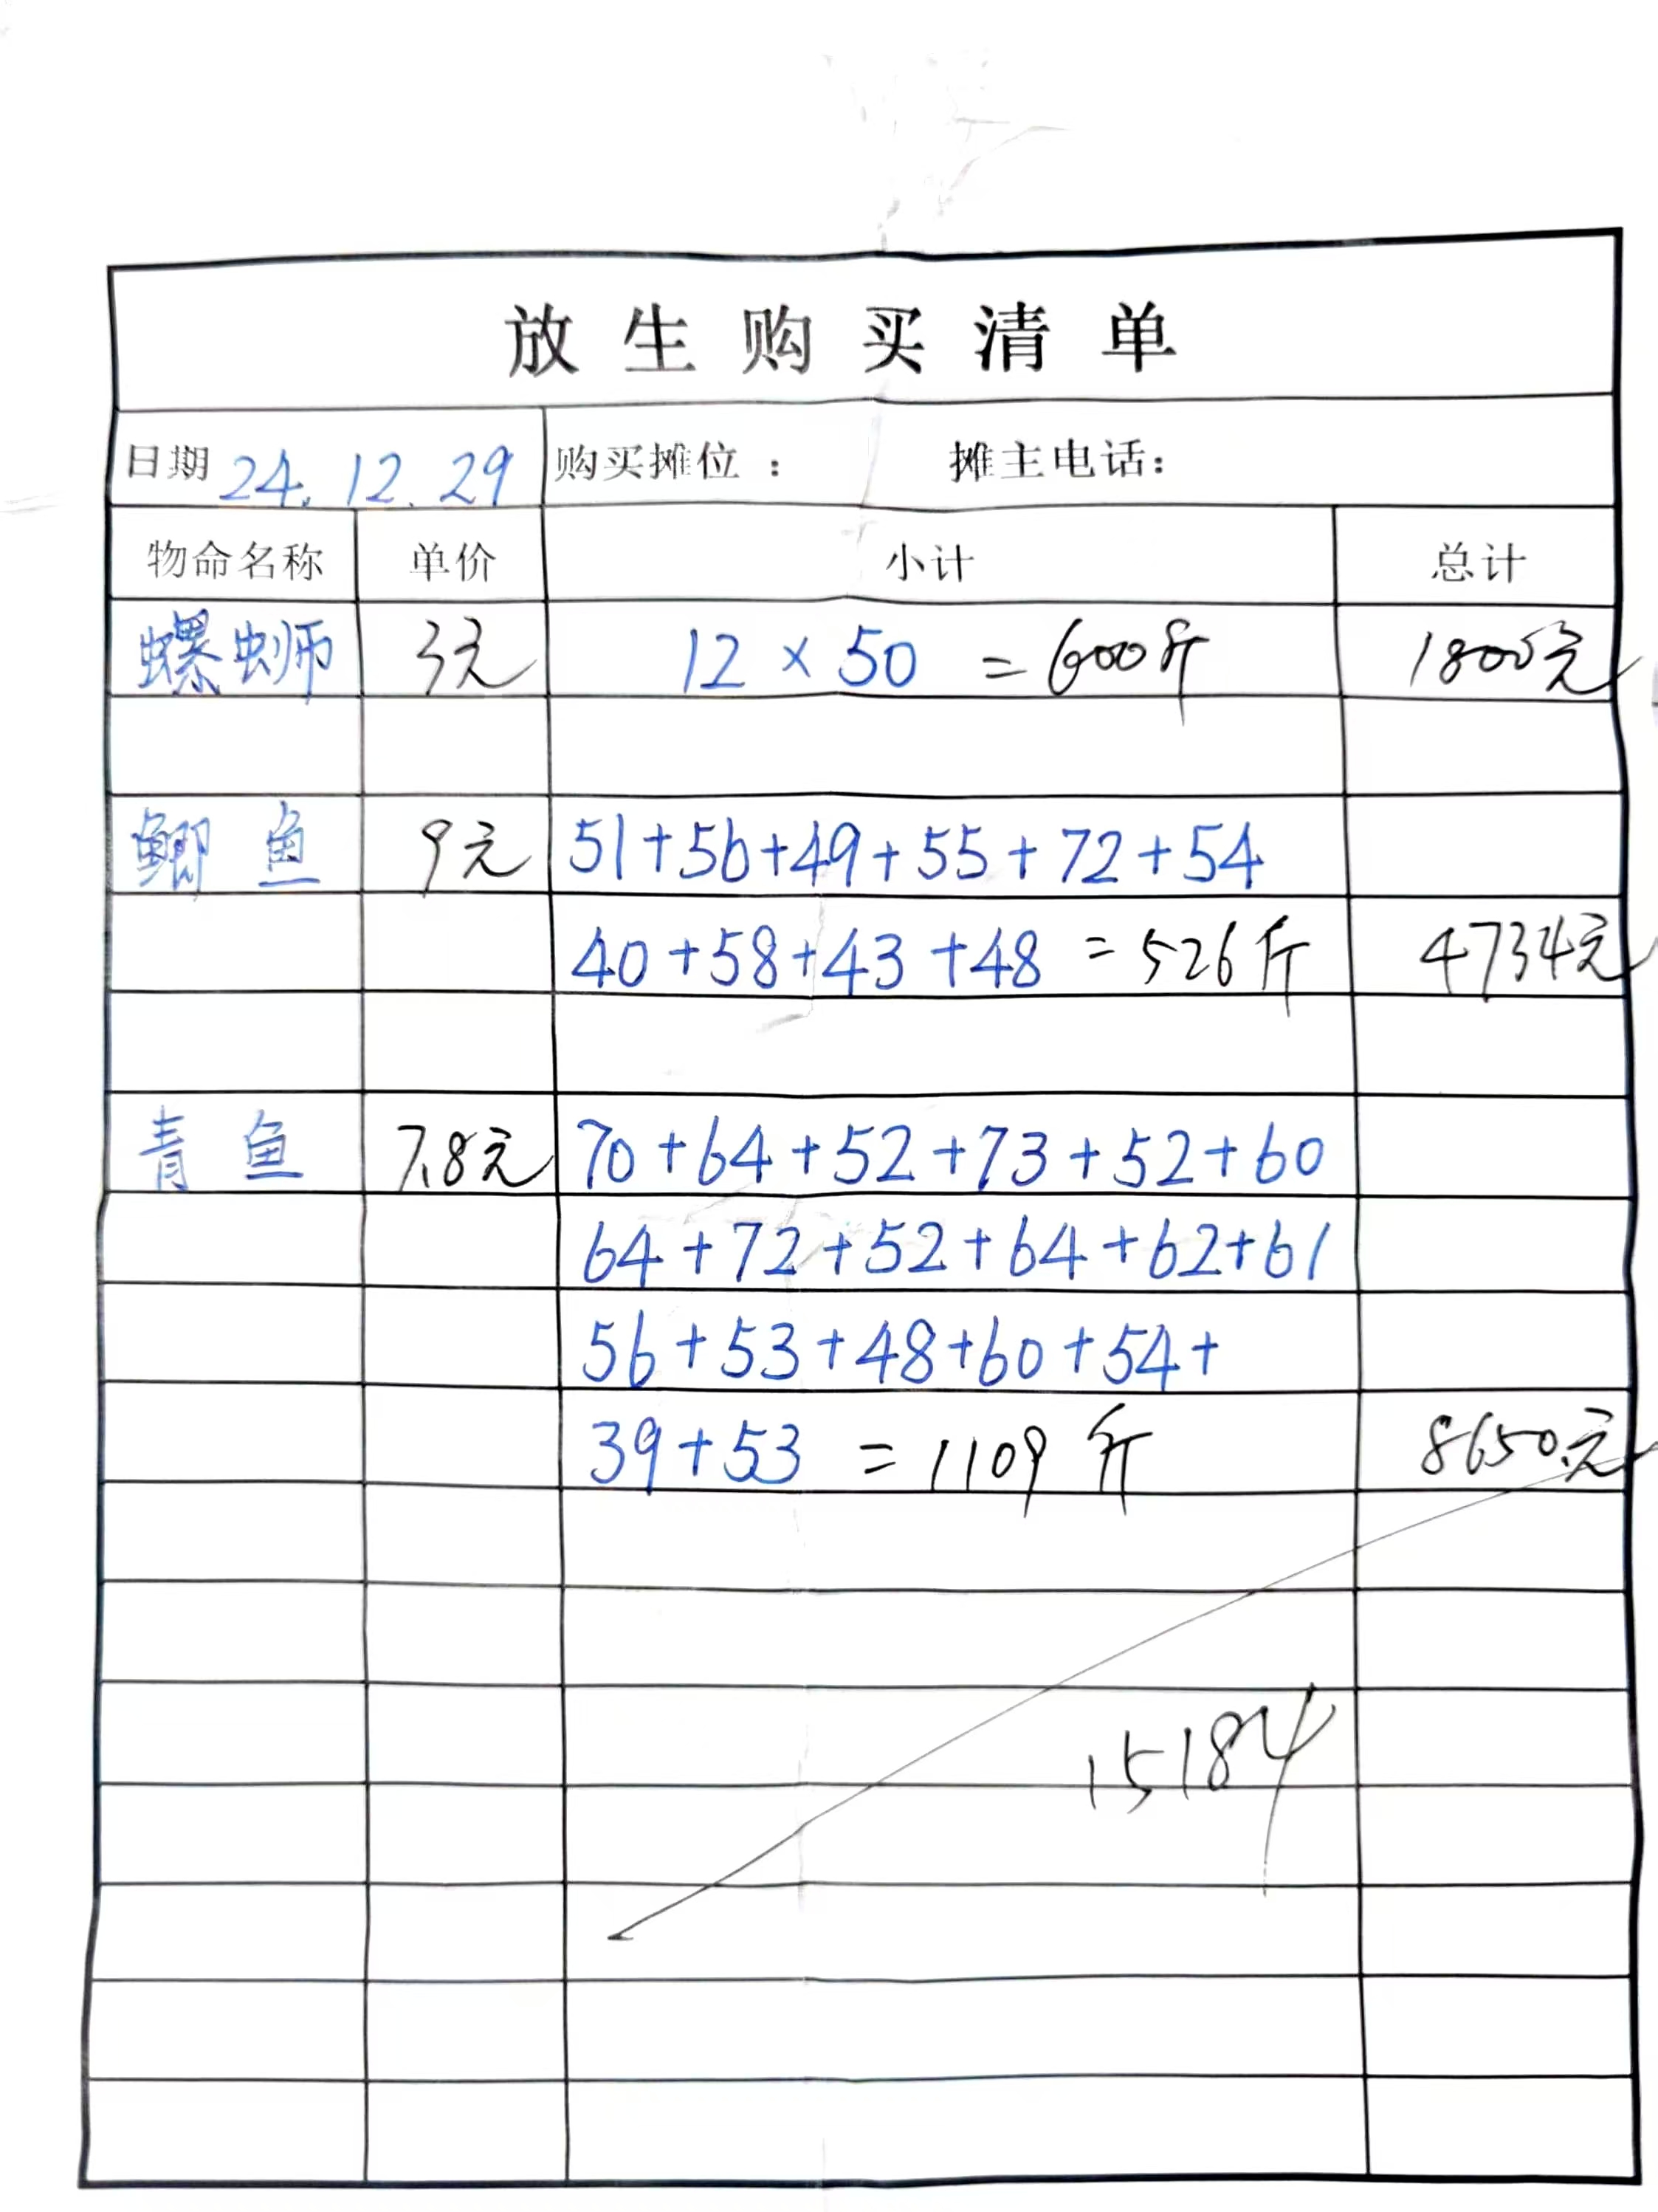 放生购买清单
日期 24.12.29 购买摊位： 摊主电话：
物命名称 单价 小计 总计
螺蛳 3元 12×50 =600斤 1800元
鲫鱼 9元 51+56+49+55+72+54
40+58+43+48 =526斤 4734元
青鱼 7.8元 70+64+52+73+52+60
64+72+52+64+62+61
56+53+48+60+54+
39+53 =1109斤 8650.元
15184